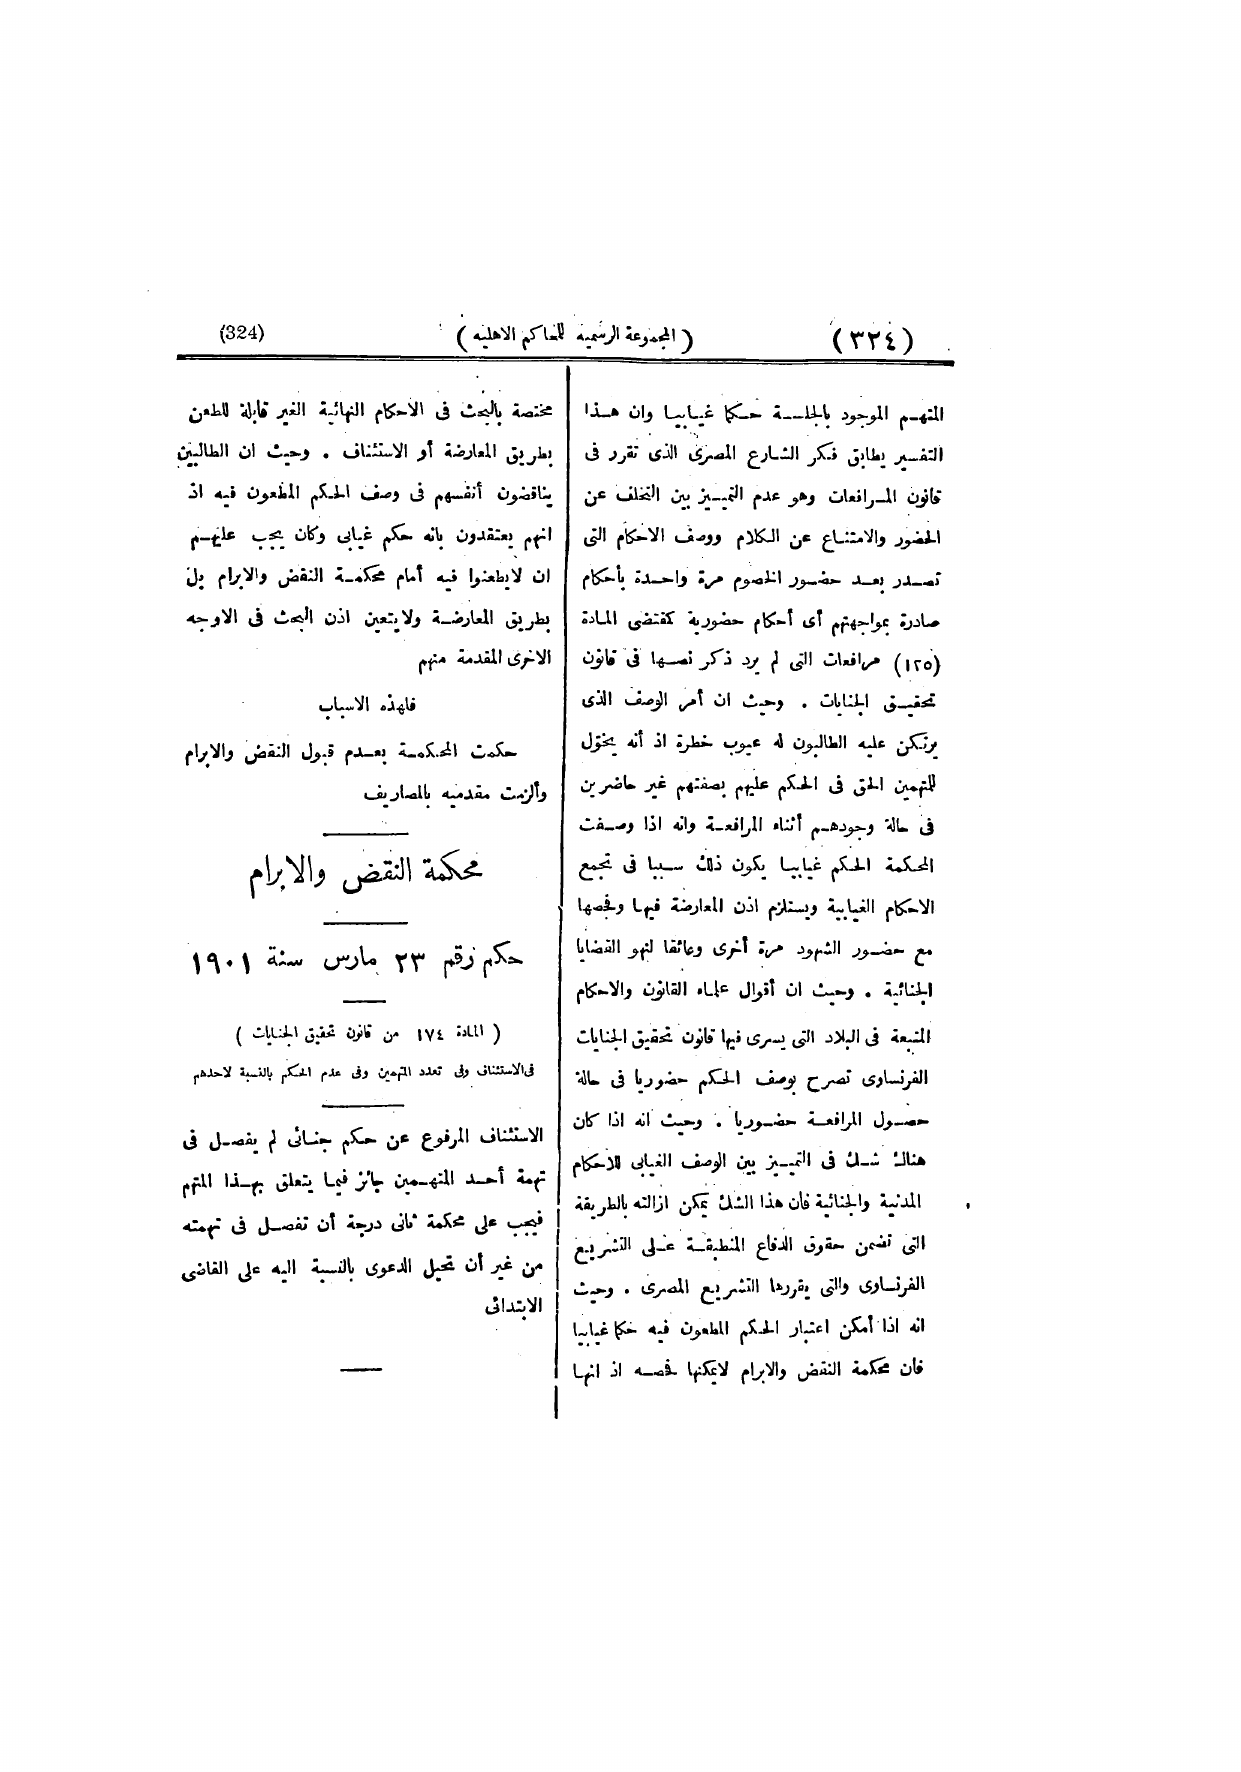 (٣٢٤)
( المجموعة الرسمية للمحاكم الاهلية )
(324)
المتهم الموجود بالجلسة حكما غيابيا وان هذا
التفسير يطابق فكر الشارع المصرى الذى تقرر فى
قانون المرافعات وهو عدم التمييز بين التخلف عن
الحضور والامتناع عن الكلام ووصف الاحكام التى
تصدر بعد حضور الخصوم مرة واحدة بأحكام
صادرة بمواجهتهم أى أحكام حضورية كمقتضى المادة
(١٢٥) مرافعات التى لم يرد ذكر نصها فى قانون
تحقيق الجنايات . وحيث ان أمر الوصف الذى
يرتكن عليه الطالبون له عيوب خطرة اذ أنه يخوّل
للمتهمين الحق فى الحكم عليهم بصفتهم غير حاضرين
فى حالة وجودهم أثناء المرافعة وانه اذا وصفت
المحكمة الحكم غيابيا يكون ذلك سببا فى تجمع
الاحكام الغيابية ويستلزم اذن المعارضة فيها وفحصها
مع حضور الشهود مرة أخرى وعائقا لنهو القضايا
الجنائية . وحيث ان أقوال علماء القانون والاحكام
المتبعة فى البلاد التى يسرى فيها قانون تحقيق الجنايات
الفرنساوى تصرح بوصف الحكم حضوريا فى حالة
حصول المرافعة حضوريا . وحيث انه اذا كان
هناك شك فى التمييز بين الوصف الغيابى للاحكام
المدنية والجنائية فان هذا الشك يمكن ازالته بالطريقة
التى تضمن حقوق الدفاع المنطبقة على التشريع
الفرنساوى والتى يقررها التشريع المصرى . وحيث
انه اذا أمكن اعتبار الحكم المطعون فيه حكما غيابيا
فان محكمة النقض والابرام لايمكنها فحصه اذ انها
مختصة بالبحث فى الاحكام النهائية الغير قابلة للطعن
بطريق المعارضة أو الاستئناف . وحيث ان الطالبين
يناقضون أنفسهم فى وصف الحكم المطعون فيه اذ
انهم يعتقدون بانه حكم غيابى وكان يجب عليهم
ان لايطعنوا فيه أمام محكمة النقض والابرام بل
بطريق المعارضة ولايتعين اذن البحث فى الاوجه
الاخرى المقدمة منهم
فلهذه الاسباب
حكمت المحكمة بعدم قبول النقض والابرام
وألزمت مقدميه بالمصاريف
محكمة النقض والابرام
حكم رقم ٢٣ مارس سنة ١٩٠١
( المادة ١٧٤ من قانون تحقيق الجنايات )
فى الاستئناف وفى تعدد المتهمين وفى عدم الحكم بالنسبة لاحدهم
الاستئناف المرفوع عن حكم جنائى لم يفصل فى
تهمة أحد المتهمين جائز فيما يتعلق بهذا المتهم
فيجب على محكمة ثانى درجة أن تفصل فى تهمته
من غير أن تحيل الدعوى بالنسبة اليه على القاضى
الابتدائى